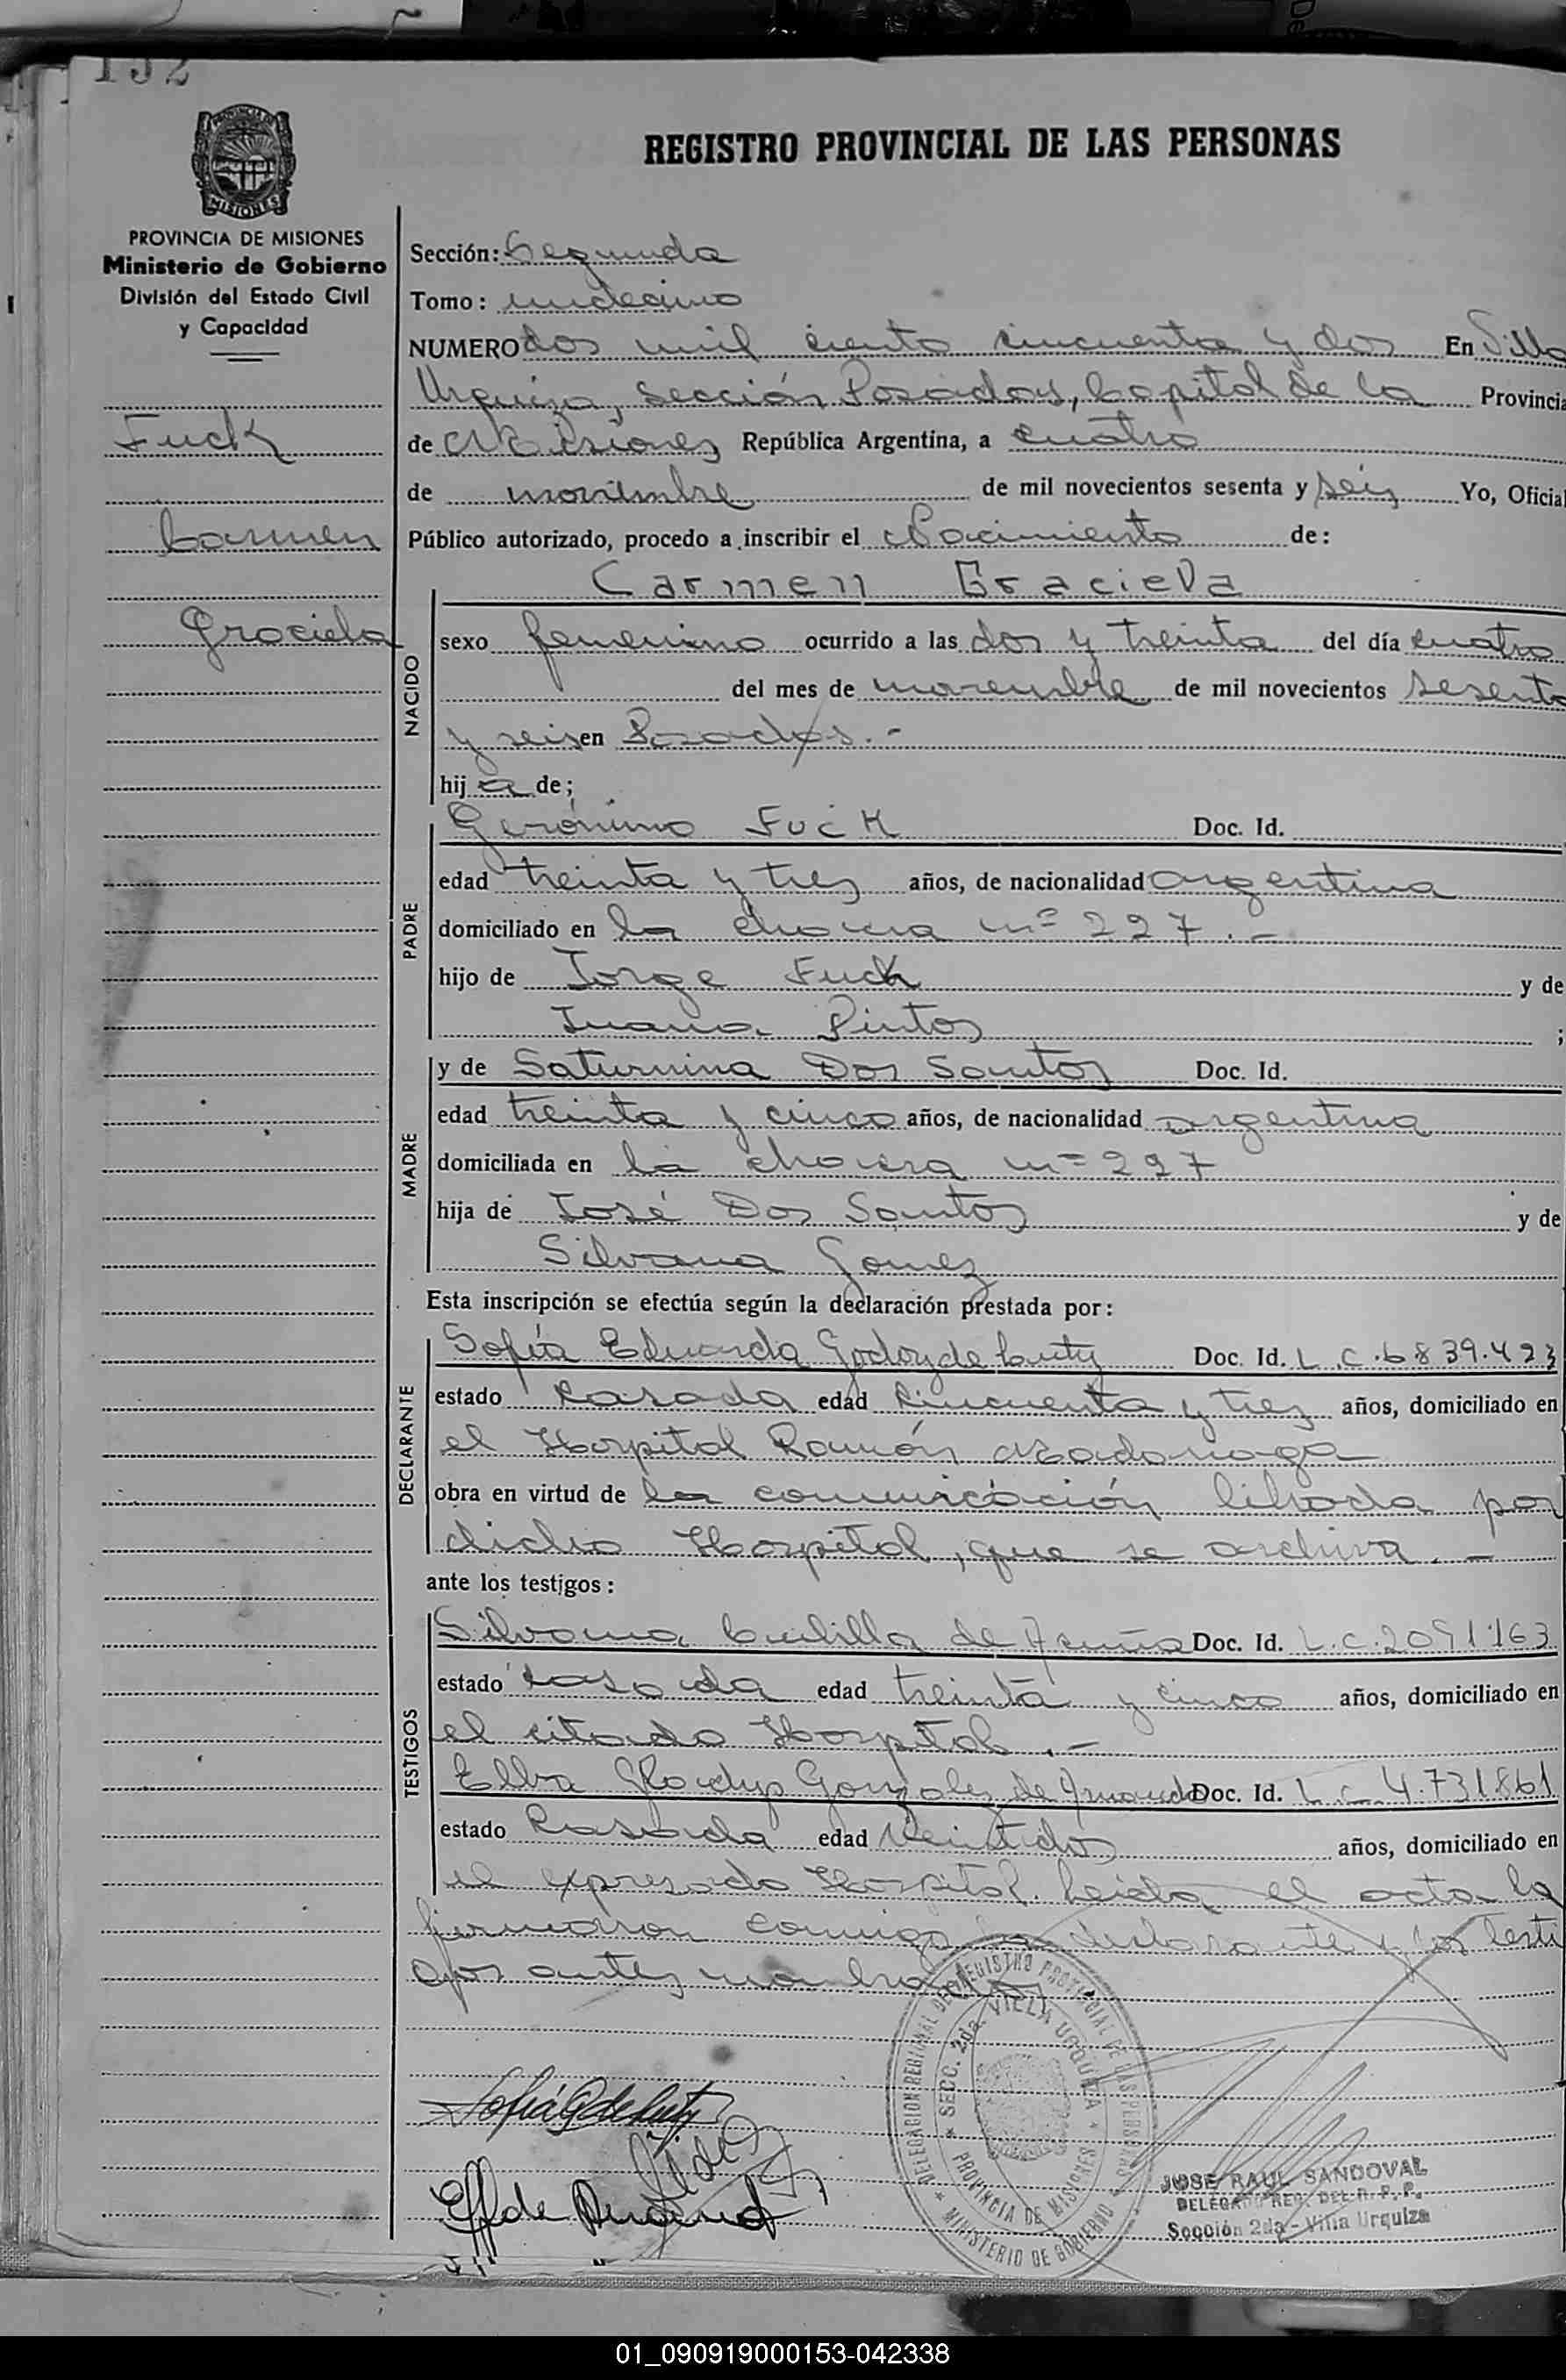 152
REGISTRO PROVINCIAL DE LAS PERSONAS
MISIONES
PROVINCIA DE MISIONES
Ministerio de Gobierno
División del Estado Civil
y Capacidad
Fuck
Carmen
Graciela
Sección: Segunda
Tomo: undecimo
NUMERO dos mil ciento cincuenta y dos En Villa
Urquiza, sección Posadas, Capital de la Provincia
de Misiones República Argentina, a cuatro
de noviembre de mil novecientos sesenta y seis Yo, Oficial
Público autorizado, procedo a inscribir el Nacimiento de:
Carmen Graciela
NACIDO
sexo femenino ocurrido a las dos y treinta del día cuatro
del mes de noviembre de mil novecientos sesenta
y seis en Posadas.-
hij a de;
Gerónimo Fuck Doc. Id.
PADRE
edad treinta y tres años, de nacionalidad argentina
domiciliado en la chacra nº 227.-
hijo de Jorge Fuck y de
Juana Pintos ;
y de Saturnina Dos Santos Doc. Id.
MADRE
edad treinta y cinco años, de nacionalidad argentina
domiciliada en la chacra nº 227
hija de José Dos Santos y de
Silvana Gomez
Esta inscripción se efectúa según la declaración prestada por:
Sofía Eduarda Godoy de Doc. Id. L.C.6839.423
DECLARANTE
estado casada edad cincuenta y tres años, domiciliado en
el Hospital Ramón Madariaga
obra en virtud de la comunicación librada por
dicho Hospital, que se archiva.-
ante los testigos:
TESTIGOS
Silvana de Acuña Doc. Id. L.C.2091163
estado casada edad treinta y cinco años, domiciliado en
el citado Hospital.-
Elba Gladys Gonzalez de Doc. Id. L.C. 4.731861
estado casada edad veintidos años, domiciliado en
el expresado Hospital. Leída el acta la
firmaron conmigo la declarante y los testi
gos antes nombrados
DELEGACION REGIONAL DEL REGISTRO PROVINCIAL DE LAS PERSONAS
SECC. 2da. VILLA URQUIZA
PROVINCIA DE MISIONES
MINISTERIO DE GOBIERNO
JOSE RAUL SANDOVAL
DELEGADO REG. DEL R. P. P.
Sección 2da - Villa Urquiza
01_090919000153-042338